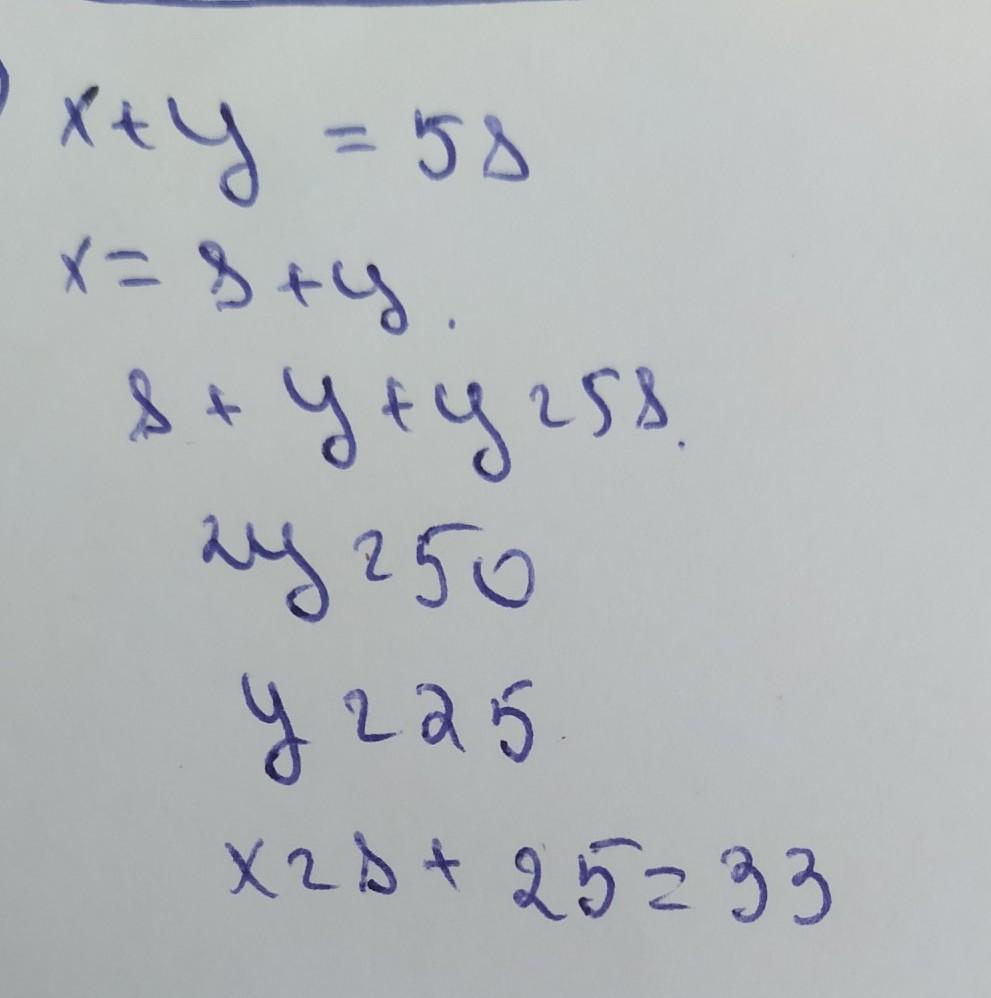 x+y = 58
x= 8+y.
8+y+y=58.
2y=50
y=25
x=8+25=33